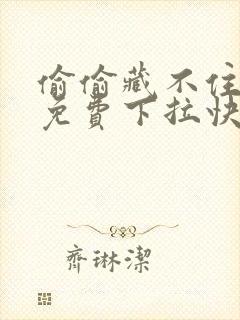 偷偷藏不住
免費下拉快
齊琳潔